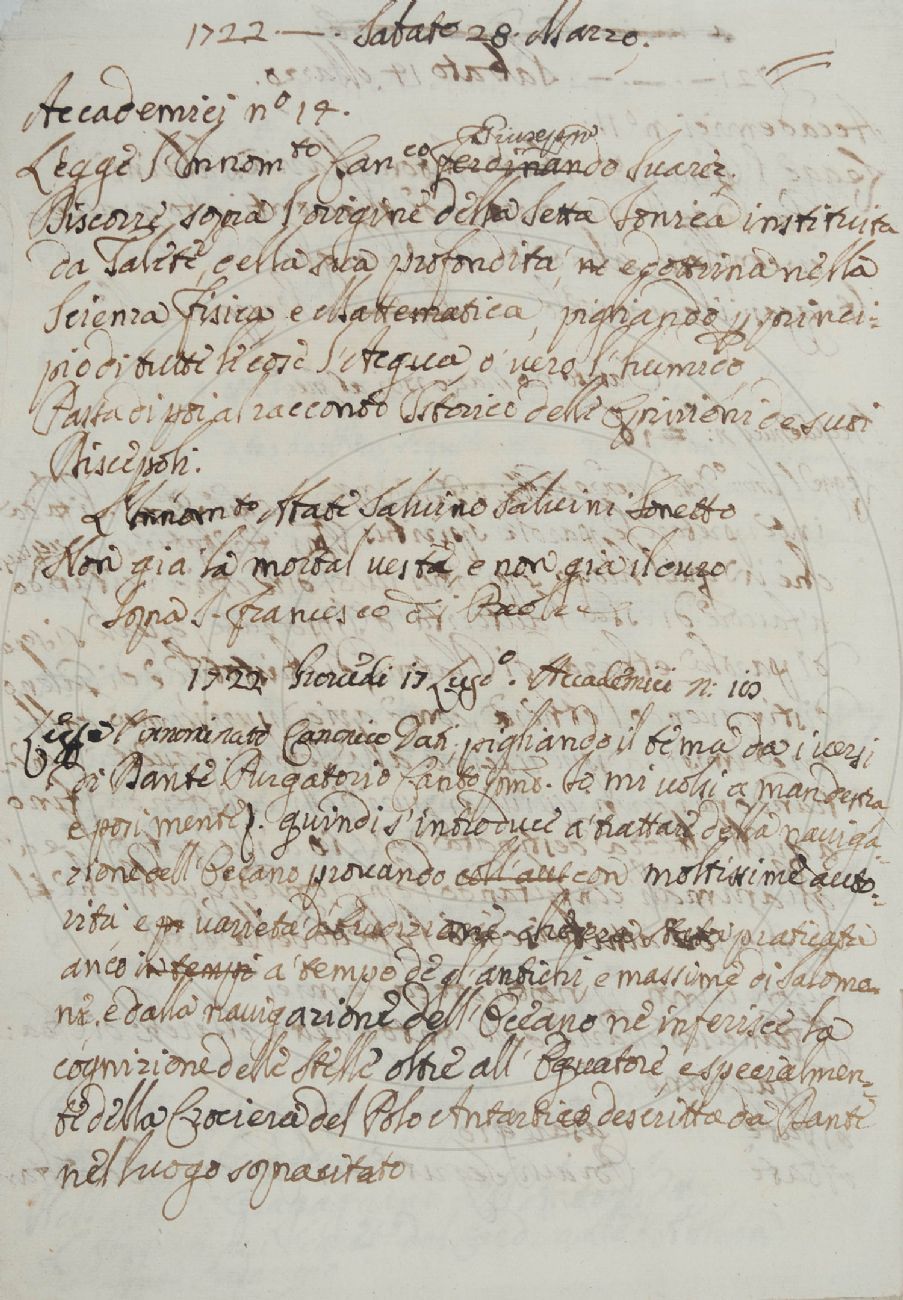 1722 — . Sabato 28. Marzo.
Accademici n.º 14.
Legge l'Innom.to Can.co Giuseppe Ferdinando Suarez.
Discorre sopra l'origine della Setta Jonica instituita
da Talete, della sua profondità, ne e dottrina nella
Scienza Fisica e Mattematica, pigliando p princi=
pio di tutte le cose l'Acqua, o' vero l'humido,
Passa di poi al racconto Istorico delle Opinioni de suoi
Discepoli.
L'Innom.to Abate Salvino Salvini Sonetto
Non già la mortal veste, e non già il
Sopra S. Francesco di Paola
1722 Giovedi 17 Lug.o. Accademici n: 10
Legge l'Innominato Canonico Dati pigliando il tema da i versi
di Dante Purgatorio Canto p.mo. Io mi volsi a man destra
e posi mente). quindi s'introduce a' trattare della naviga=
zione dell'Occano provando coll'aut con moltissime auto=
rità e p varietà d'erudizione che praticata
anco in tempi a' tempo de gl'antichi, e massime di Salomo=
ne. e dalla navigazione dell'Occano ne inferisce la
cognizione delle Stelle oltre all'Equatore, e specialmen=
te della Crociera del Polo Antartico descritta da Dante
nel luogo sopracitato